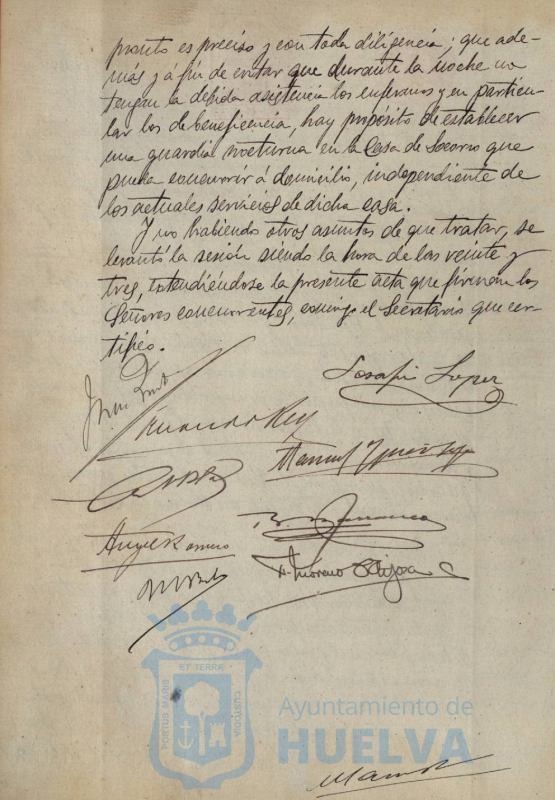 pronto es preciso y con toda diligencia; que ade-
más y á fin de evitar que durante la noche no
tengan la debida asistencia los enfermos y en particu-
lar los de beneficencia, hay propósito de establecer
una guardia nocturna en la Casa de Socorro que
pueda concurrir á domicilio, independiente de
los actuales servicios de dicha casa.
Y no habiendo otros asuntos de que tratar, se
levantó la sesión siendo la hora de las veinte y
tres, extendiéndose la presente acta que firman los
Señores concurrentes, conmigo el Secretario que cer-
tifico.
López
Rey
Manuel
Angel Romero
A. Moreno
ET TERRA
PORTUS MARIS
CUSTODIA
Ayuntamiento de
HUELVA